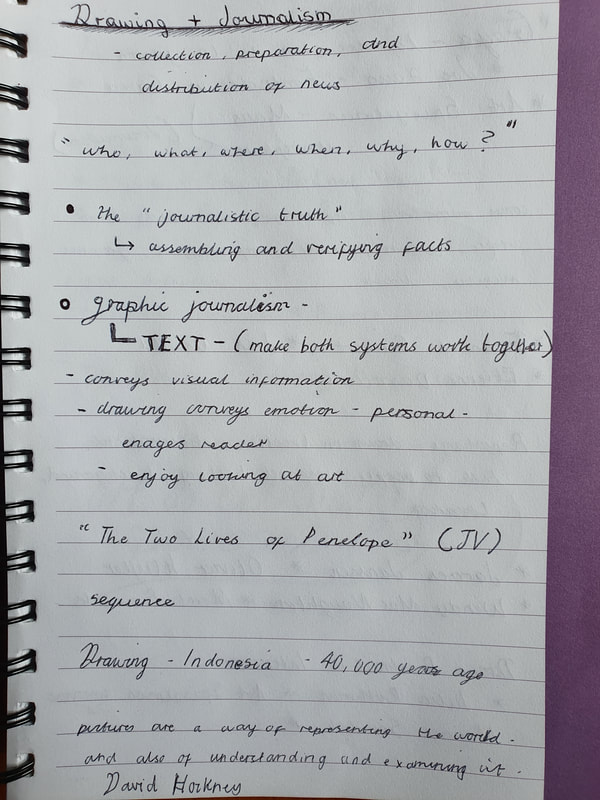 Drawing + Journalism
- collection, preparation, and
distribution of news
" who, what, where, when, why, how? "
• the "journalistic truth"
↳ assembling and verifying facts
• graphic journalism -
↳ TEXT - (make both systems work together)
- conveys visual information
- drawing conveys emotion - personal -
enages reader
- enjoy looking at art
"The Two Lives of Penelope" (JV)
sequence
Drawing - Indonesia - 40,000 years ago
pictures are a way of representing the world -
and also of understanding and examining it.
David Hockney